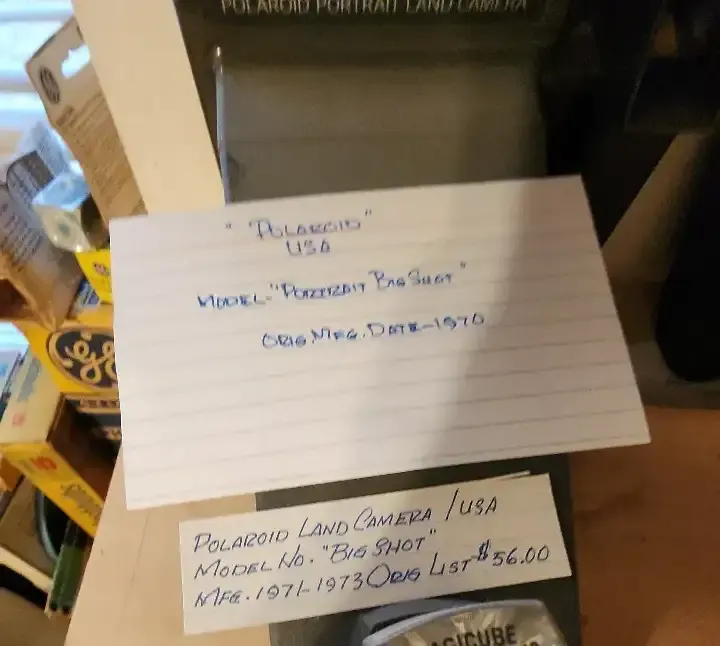 POLAROID PORTRAIT LAND CAMERA
" POLAROID"
USA
MODEL-"PORTRAIT BIG SHOT"
ORIG. MFG. DATE-1970
GE
POLAROID LAND CAMERA / USA
MODEL NO. "BIG SHOT"
MFG. 1971-1973 ORIG LIST-$56.00
MAGICUBE